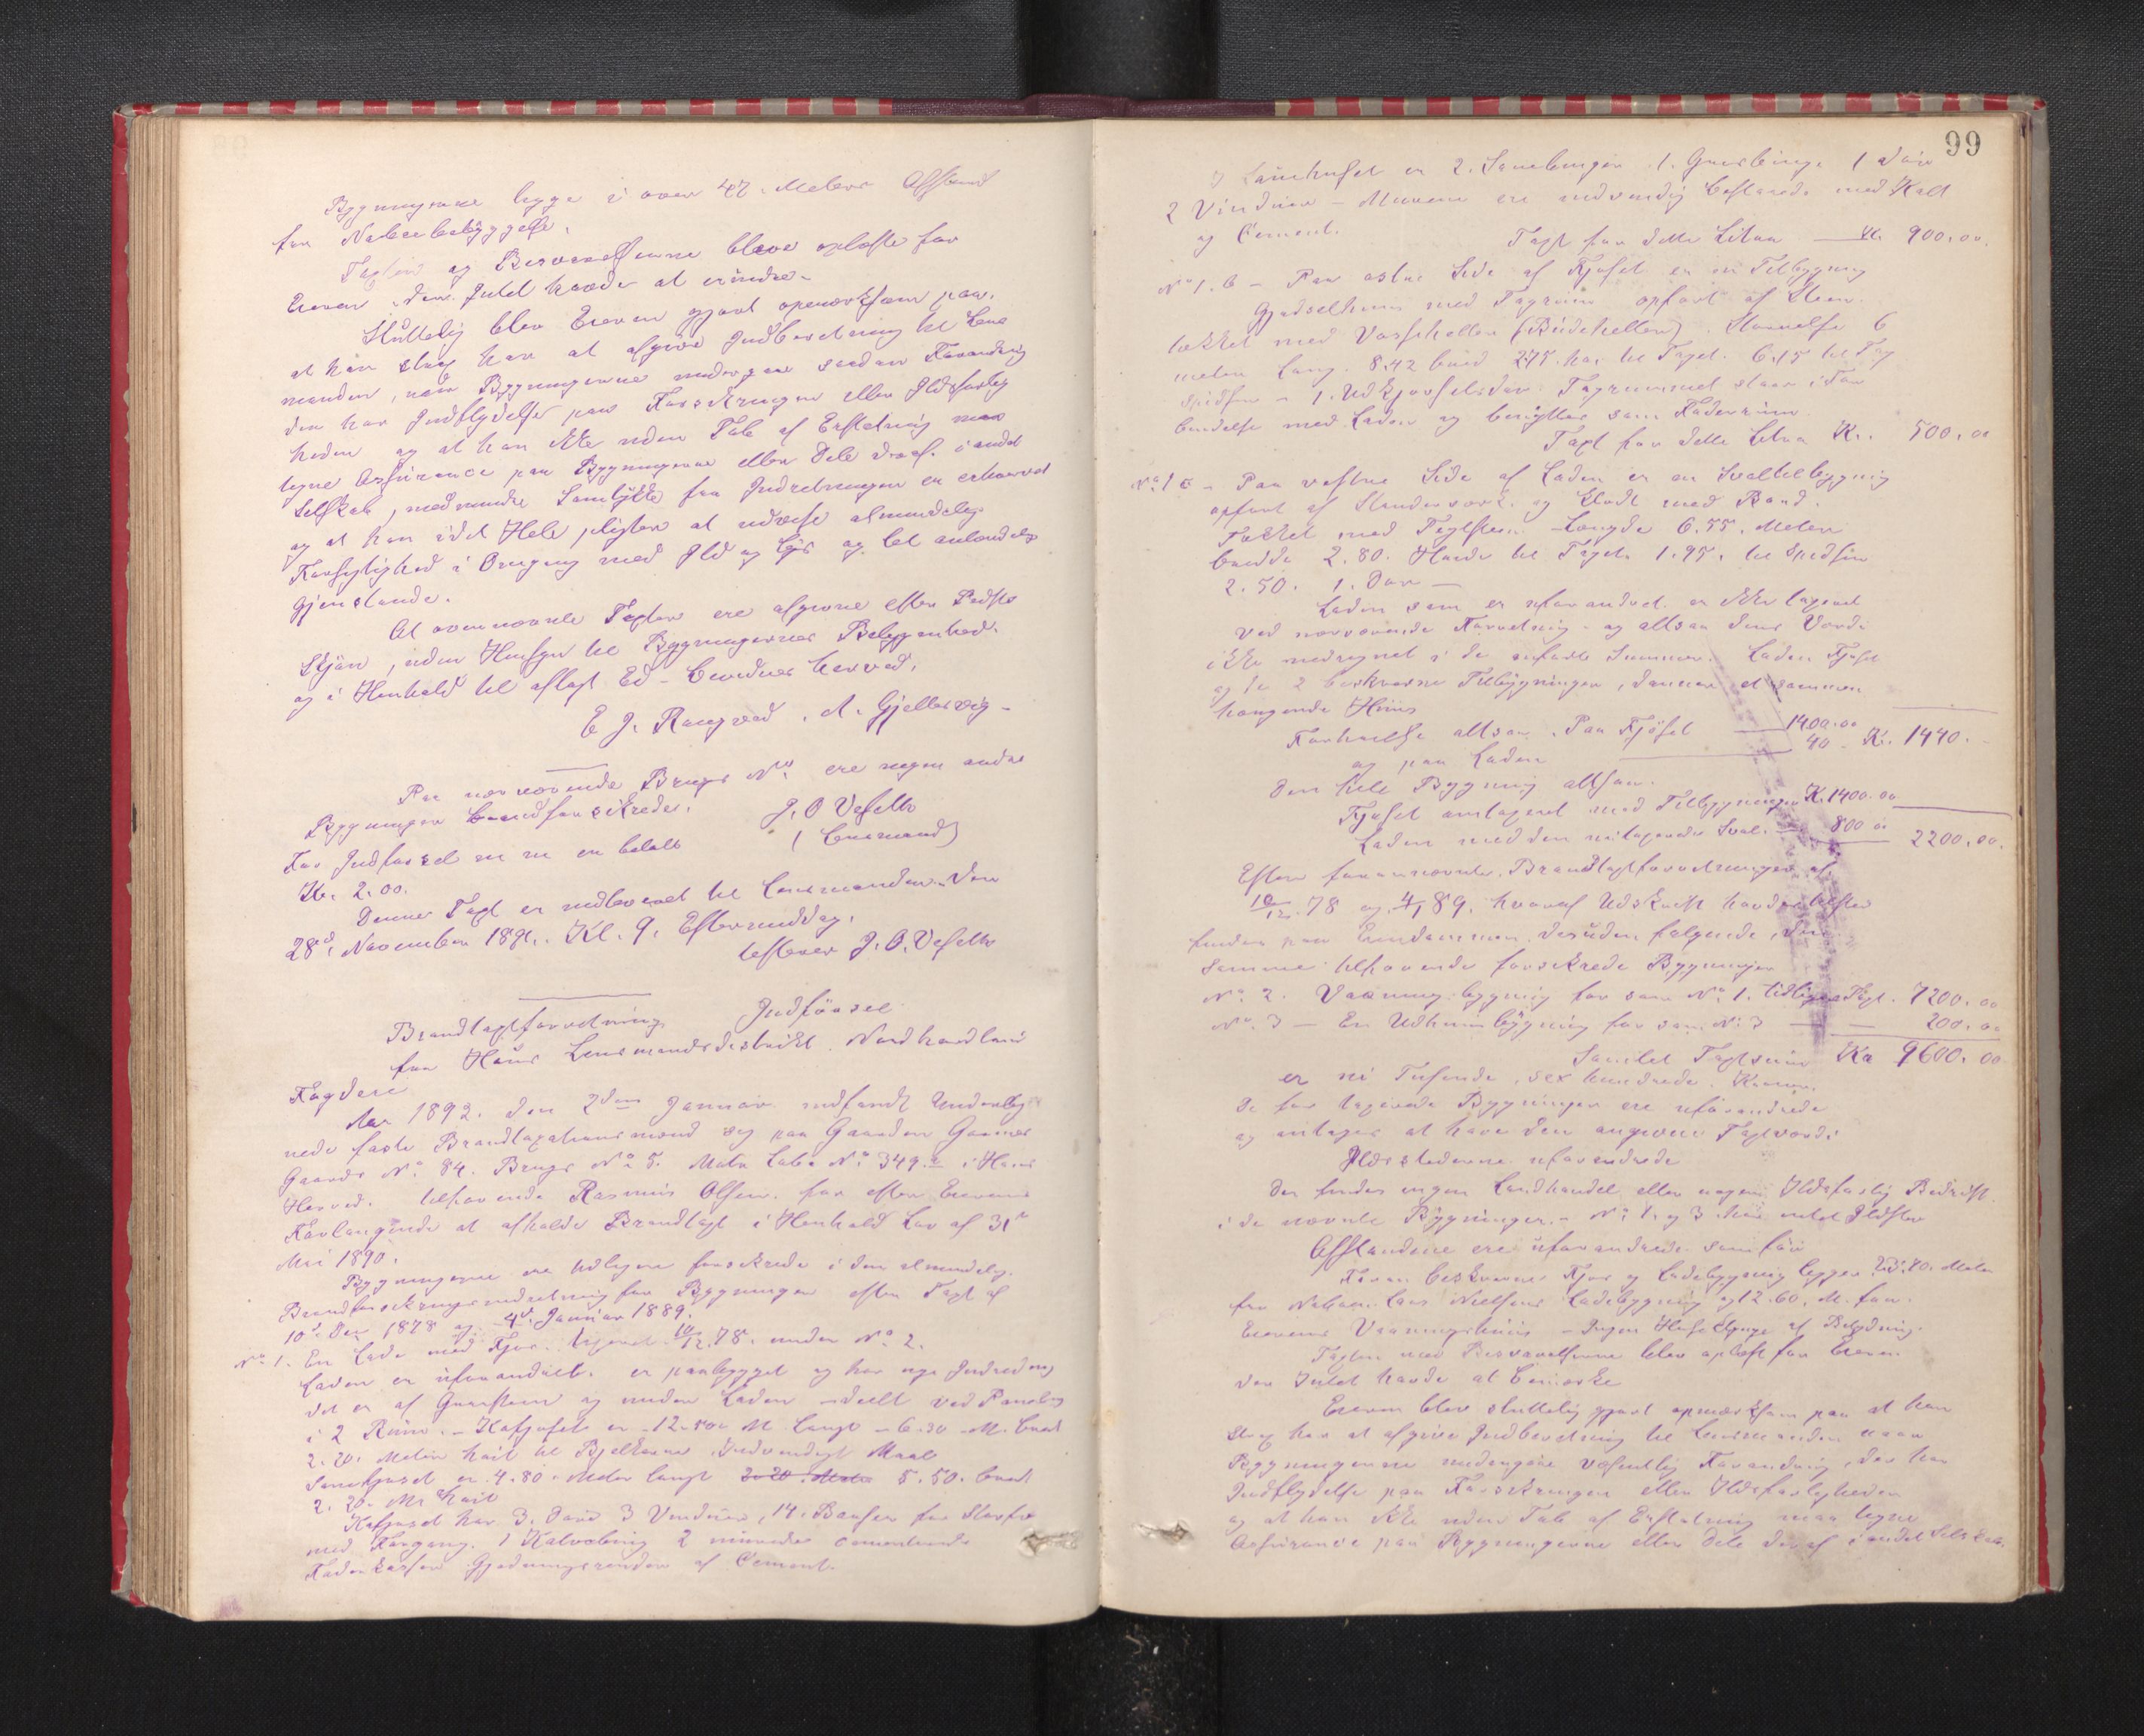 Bygningerne ligge i over 42. Meters Afstand
fra Nabobebyggelse.
Taxten og Besvarelserne bleve oplæste for
Eieren, der Intet havde at erindre.
Sluttelig blev Eieren gjort opmærksom paa,
at han strax har at afgive Indberetning til Lens
manden, naar Bygningerne undergaa saadan Forandring
der har Indflydelse paa Forsikringen eller Ildsfarlig
heden og at han ikke uden Tab af Erstatning maa
tegne Assurance paa Bygningerne eller Dele deraf i andet
Selskab, medmindre Samtykke fra Indretningen er erhvervet
og at han i det Hele pligter at udvise almindelig
Forsigtighed i Omgang med Ild og Lys og let antændelige
Gjenstande.
At ovennævnte Taxter ere afgivne efter Bedste
Skjøn, uden Hensyn til Bygningernes Beliggenhed
og i Henhold til aflagt Ed - bevidnes herved.
E J. Rongved. A. Gjellesvig -
Paa nærværende Brugs No ere ingen andre
Bygninger brandforsikrede. J. O Vefelle
For Indførsel m m er betalt (Lensmand)
Kr. 2.00.
Denne Taxt er indleveret til Lensmanden den
28de November 1891. Kl. 9. Eftermiddag.
testerer J. O. Vefelle
Indførsel
Brandtaxtforretning
fra Haus Lensmandsdistrikt Nordhordland
Fogderi
Aar 1892. den 2den Januar indfandt Underteg
nede faste Brandtaxationsmænd sig paa Gaarden
Gaards No 84. Brugs No 5. Matr Løbe No 349.a i Haus
Herred. tilhørende Rasmus Olsen. for efter Eierens
Forlangende at afholde Brandtaxt i Henhold Lov af 31te
Mai 1890.
Bygningerne ere tidligere forsikrede i den almindelig.
Brandforsikringsindretning for Bygninger efter Taxt af
10de Dez 1878 og 4de Januar 1889.
No 1. En Lade med Fjøs. taxeret 10/12.78. under No 2.
Laden er uforandret. er paabygget og har nye Indredning
det er af Graasteen og under Laden - deelt ved Paneling
i 2 Rum. - Kofjøset er - 12.50 M langt - 6.30 M. bredt
2.20. Meter høit til Bjelkerne Indvendigt Maal
Sauefjøset er 4.80. Meter langt 2.20 Meter 5.50. bredt
2.20. Mr høit
Kofjøset har 3. Døre 3 Vinduer, 14. Baaser for Storfæ
med Forgang. 1 Kalvebing 2 murede cementerede
Foderkasser Gjødningsrender af Cement.
99
I Sauehuset er 2. Sauebinger 1. Grisebinge 1 Dør
2 Vinduer - Murene ere indvendig bestrøgede med Kalk
og Cement.
Taxt for dette Litra — Kr. 900.00.
No 1. b - Paa østre Side af Fjøset er en Tilbygning
Gjødselhuus med Tagrum opført af Steen.
tækket med Vosseheller (Budeheller). Størrelse 6
meter lang. 8.42 bred 2.75. høi til Taget. 6.15 til Tag
spidsen - 1. Udkjørselsdør. Tagrummet staar i For
bindelse med Laden og benyttes som Foderrum.
Taxt for dette Litra Kr. 500.00
No 1 c - Paa vestre Side af Laden er en Svaltilbygning
opført af Standerværk. og klædt med Bord.
Tækket med Teglsteen. Længde 6.55. Meter
bredde 2.80. Høide til Taget 1.95. til Spidsen
2.50. 1. Dør —
Laden som er uforandret. er ikke taxeret
ved nærværende Forretning - og altsaa dens Værdi
ikke medregnet i de anførte Summer. Laden Fjøset
og de 2 beskrevne Tilbygninger, danner et sammen
hængende Huus
Forhøielse altsaa. Paa Fjøset — 1400.00
og paa Laden — 40 - Kr. 1440.-
den hele Bygning altsaa.
Fjøset omtaxeret med Tilbygninger K. 1400.00
Laden med den nytaxerede Sval. — 800 00 2200.00.
Efter forannævnte Brandtaxtforretninger af
10/12.78 og 4/1 89. hvoraf Udskrift havdes tilstede
findes paa Eiendommen. desuden følgende, den
samme tilhørende forsikrede Bygninger
No 2. Vaaningsbygning før som No 1. tidligere Taxt. 7200.00
No 3 — En Udhuusbygning før som No 3 — — 200.00
Samlet Taxtsum Kr 9600.00
er ni Tusende, sex hundrede Kroner.
De før taxerede Bygninger ere uforandrede
og antages at have den angivne Taxtværdi
Ildstederne uforandrede
Der findes ingen Landhandel eller nogen Ildsfarlig Bedrift
i de nævnte Bygninger. - No 1. og 3 har intet Ildsted
Afstandene ere uforandrede som før
Foran beskrevne Fjøs og Ladebygning ligger 23.70. Meter
fra Naboen Lars Nielsens Ladebygning og 12.60. M. fra
Eierens Vaaningshuus - Ingen Huusklynge af Betydning.
Taxten med Besvarelserne blev oplæst for Eieren
der Intet havde at bemærke
Eieren blev sluttelig gjort opmærksom paa at han
strax har at afgive Indberetning til Lensmanden naar
Bygningerne undergaa væsentlig Forandring, der har
Indflydelse paa Forsikringen eller Ildsfarligheden
og at han ikke uden Tab af Erstatning maa tegne
Assurance paa Bygningerne eller Dele deraf i andet Selskab.